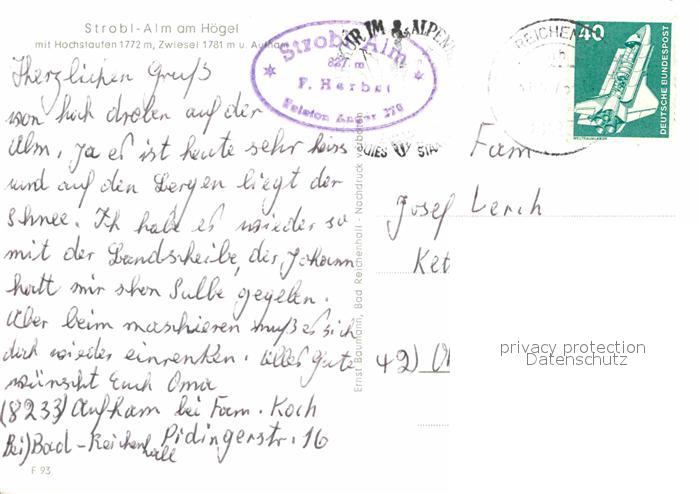 Strobl-Alm am Högel
mit Hochstaufen 1772 m, Zwiesel 1781 m u. Aufham
Herzlichen Gruß
von hoch droben auf der
Alm. Ja es ist heute sehr heiss
und auf den Bergen liegt der
Schnee. Ich habe es wieder so
mit der Bandscheibe, der Johann
hatt mir schon Salbe gegeben.
Aber beim maschieren muß es sich
doch wieder einrenken. Alles Gute
wünscht Euch Oma
(8233) Aufham bei Fam. Koch
Bei) Bad-Reichenhall Pidingerstr. 16
F 93
Strobl-Alm
827 m
F. Herbst
Telefon Anger 276
IM ALPEN
REICHEN
40
DEUTSCHE BUNDESPOST
WELTRAUMLABOR
Ernst Baumann, Bad Reichenhall - Nachdruck verboten
Fam
Josef Lerch
Ket
42) O
privacy protection
Datenschutz